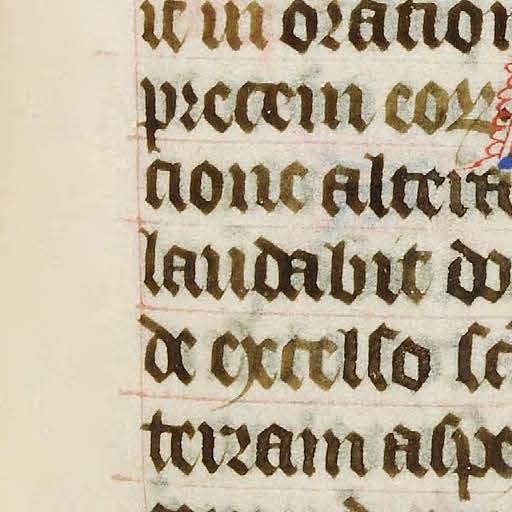 it in oration
precem eoꝝ.
tione altera
laudabit do
de excelso sc
terram aspe